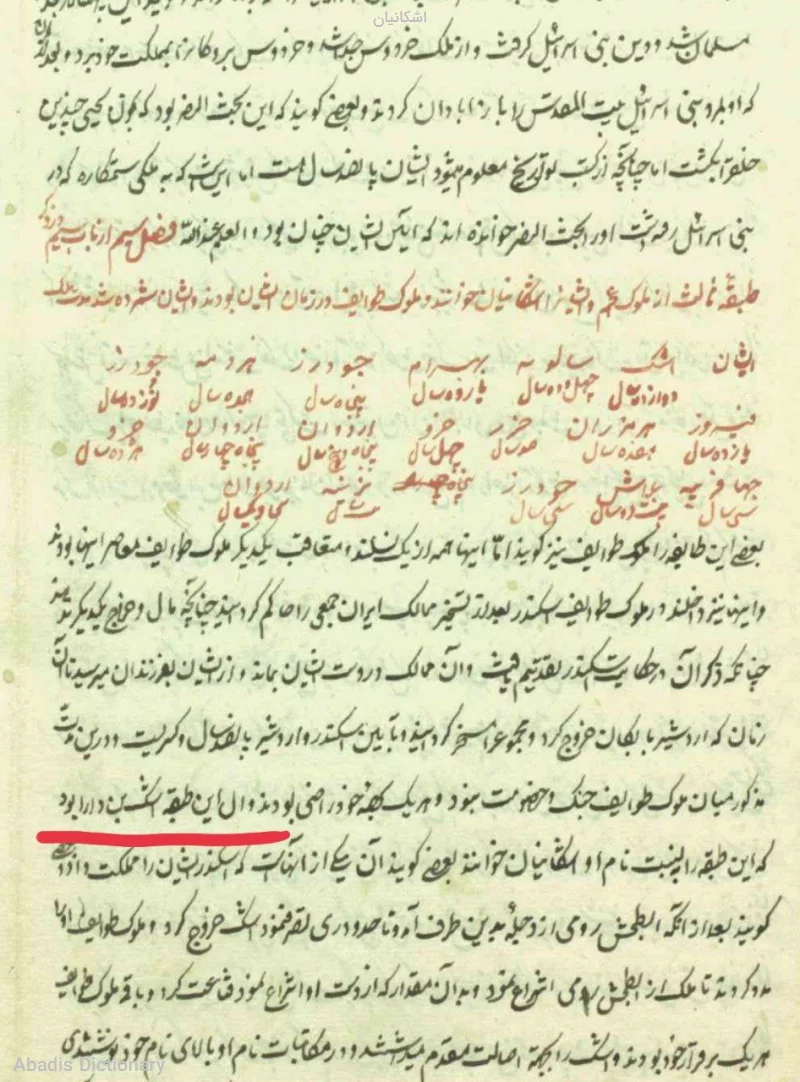 اشکانیان
مسلمان شد و دین بنی اسرائیل گرفت و از ملک خردوس جدا شد و خردوس بردکانرا بمملکت خود برد و بعد
که او بلاد بنی اسرائیل بیت المقدس را باز آبادان کردند و بعضی گویند که این بخت النصر بود که بخون یحیی چندین
خلق را بکشت اما چنانچه از کتب تواریخ معلوم میشود ایشان پانصد سال است اما این است که به ملکی ستمکاره که در
بنی اسرائیل رفته است او را بخت النصر خوانده اند که ایشان چنان بود والعلم عند الله فصل سیم از باب سیم در ذکر
طبقهٔ ثالث از ملوک عجم و ایشانرا اشکانیان خوانند و ملوک طوایف در زمان ایشان بودند و ایشان شانزده مدت ملک
ایشان اشک سالوبه بهرام جودرز هرمه جودرز
دوازده سال چهل و ده سال یازده سال پنجاه سال هجده سال نوزده سال
فیروز هرمزان خزر خرو اردوان اردوان خرو
یازده سال هفده سال صد سال چهل سال پنجاه و پنج سال پنجاه و چهار سال هژده سال
جهافریه بلاش جودرز نرسه اردوان
سی سال بیست و دو سال سی سال سی و یکسال
بعضی این طایفه را ملوک طوایف نیز گویند اما اینها همه از یک نسلند و متعاقب یکدیگر ملوک طوایف معاصر اینها بودند
و اینها نیز داخلند در ملوک طوایف اسکندر بعد از تسخیر ممالک ایران جمعی را حاکم گردانید چنانچه مال و خراج یکدیگر ندهند
چنانکه ذکر آن در حکایت اسکندر تقدیم یافت و آن ممالک در دست ایشان بماند و از ایشان بفرزندان میرسید تا آن
زمان که اردشیر بابکان خروج کرد و مجموع را مسخر گردانید و مابین اسکندر و اردشیر پانصد سال و کسریست و درین مدت
مذکور میان ملوک طوایف جنگ و خصومت نبود و هر یک بحصهٔ خود راضی بودند و اول این طبقه اشک بن دارا بود
که این طبقه را بنسبت نام او اشکانیان خوانند بعضی گویند آن یکی از آنهاست که اسکندر ایشان را مملکت داد
گویند بعد از آنکه ابطخش رومی از دجله بدین طرف آمد و تا حدود ری تصرف نمود اشک خروج کرد و ملوک طوایف او را
مدد کردند تا ملک از ابطخش رومی انتزاع نمود و بدان مقدار که از دست او انتزاع نمود قناعت کرد و باقی ملوک طوایف
هر یک برقرار خود بودند و اشک را بجهة اصالت مقدم میداشتند و در مکاتبات نام او بالای نام خود نوشتندی
Abadis Dictionary